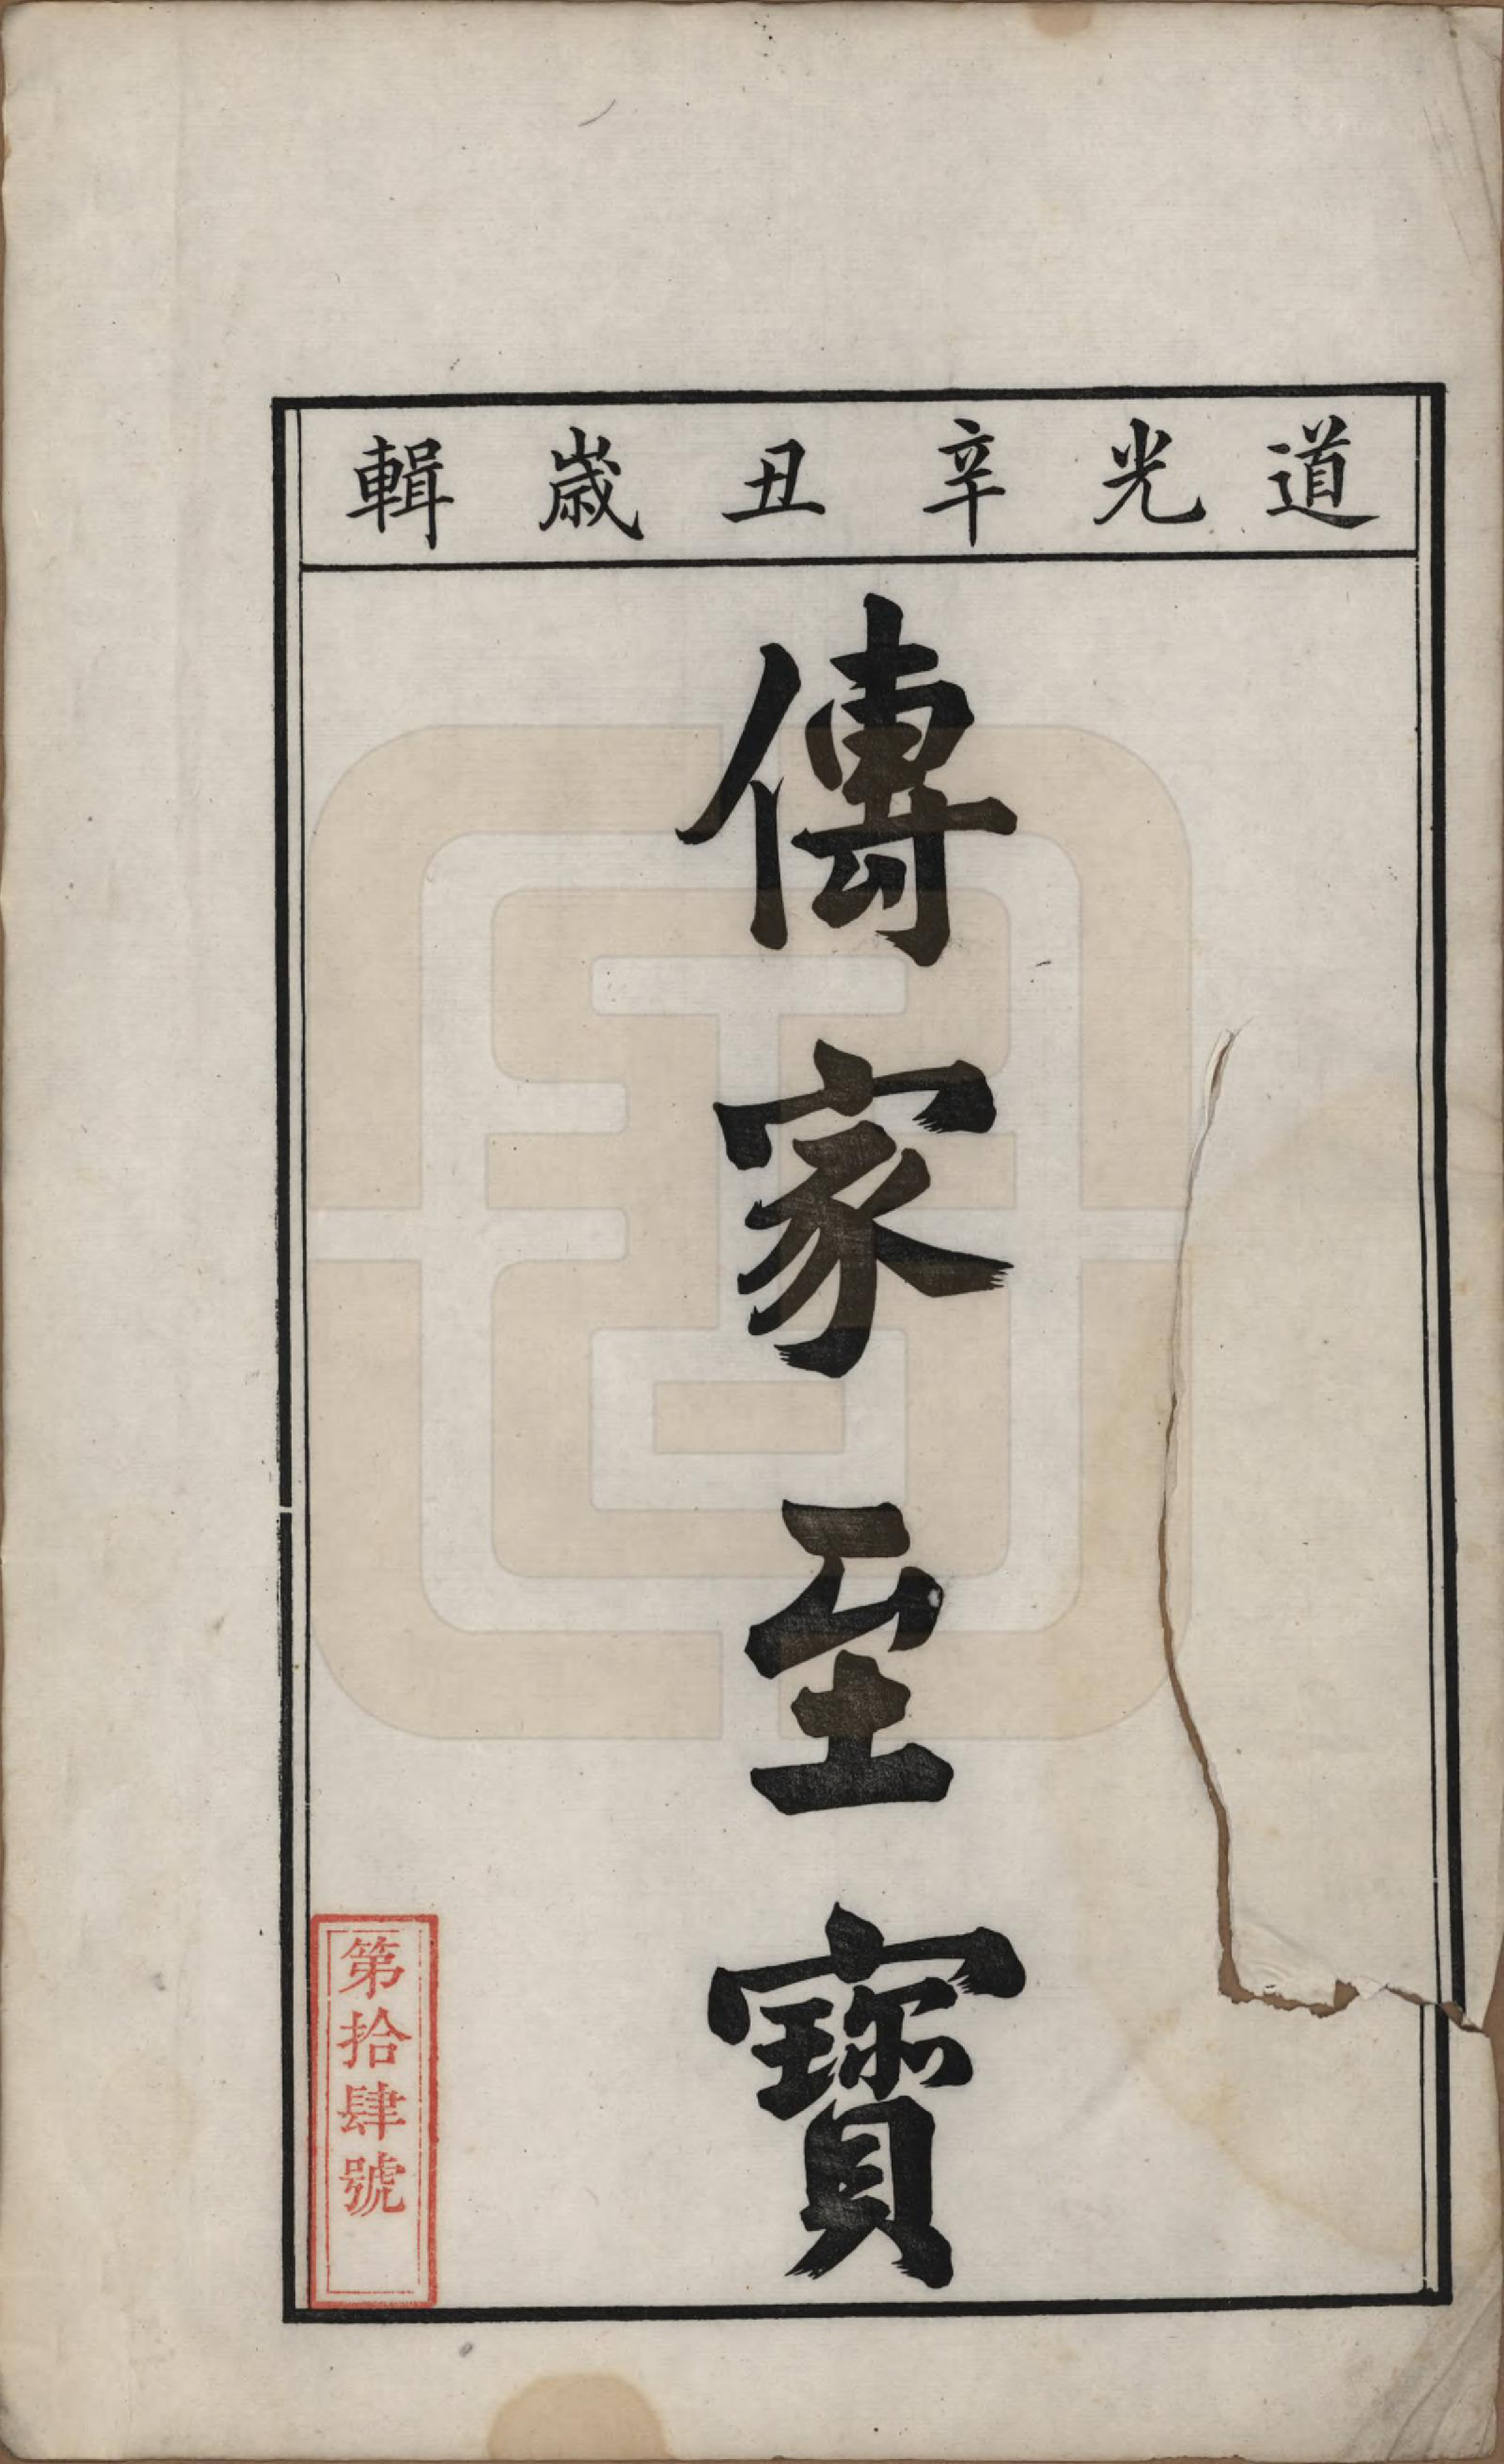 道光辛丑歲輯
傳家至寶
第拾肆號